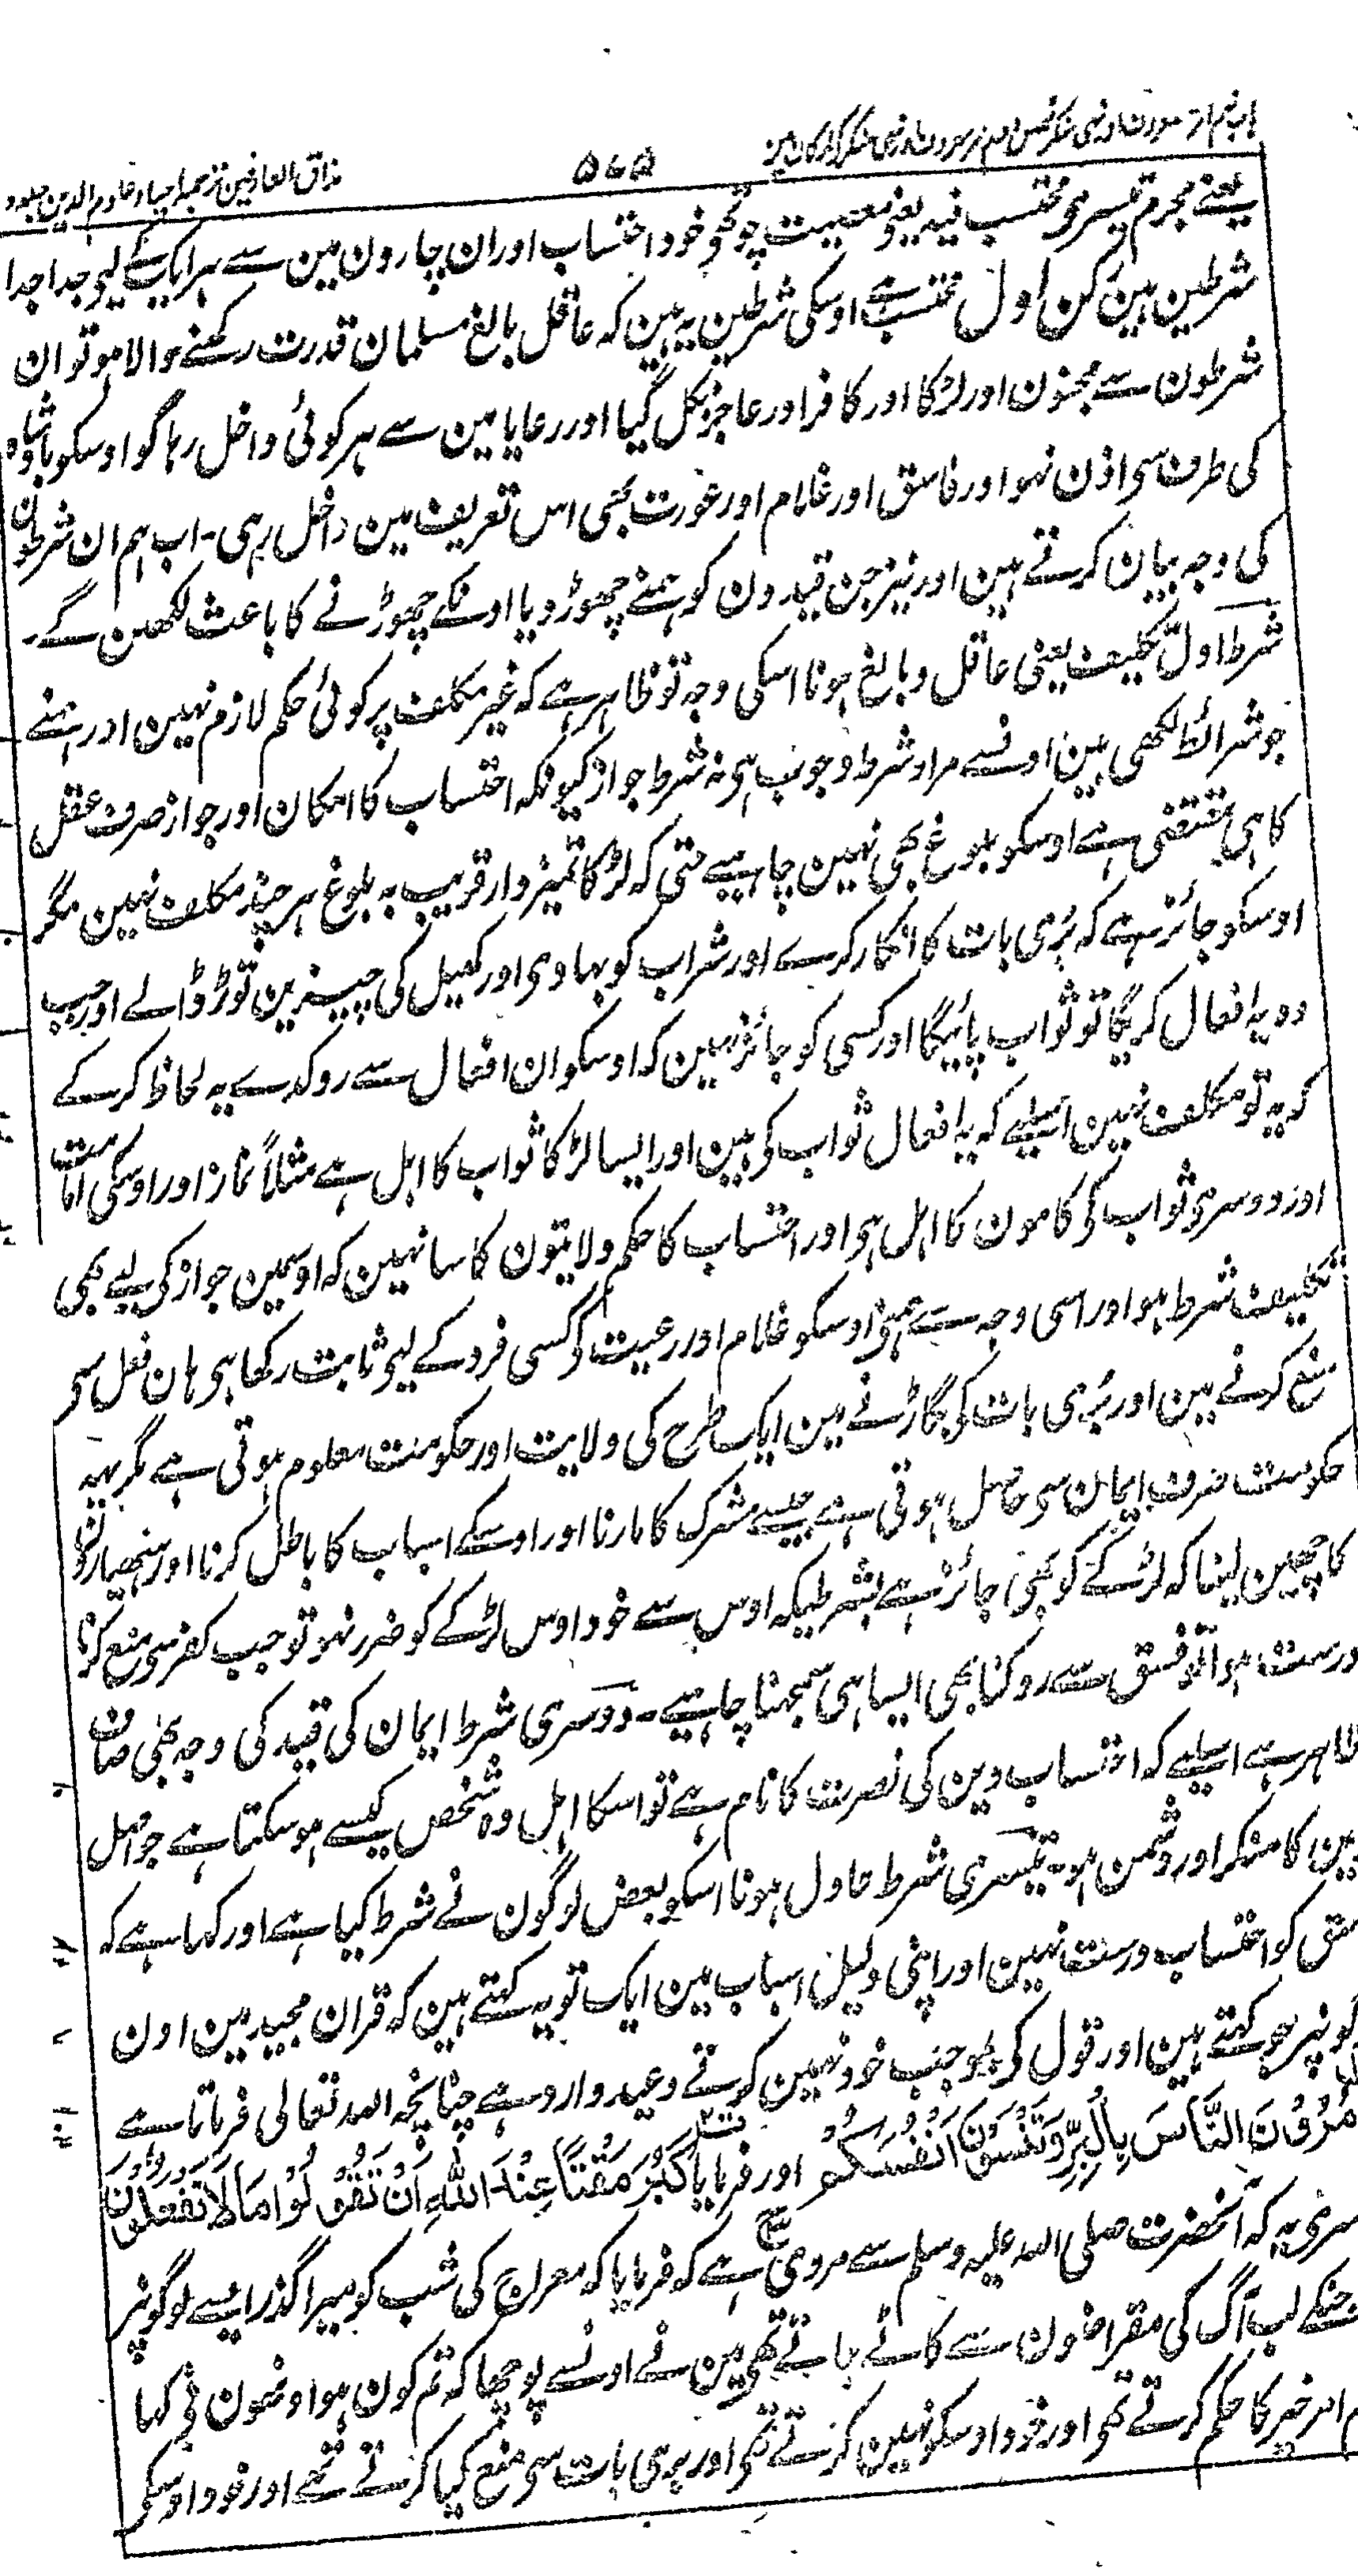 باب نہم امر معروف اور نہی منکر فصل دوم امر معروف اور نہی منکر کے ارکان مین
۵۶۵
مذاق العارفین ترجمہ احیاء علوم الدین جلد دوم
یعنے مجرم تیسرے محتسب فیہ یعنے معصیت چوتھے خود احتساب اور ان چارون مین سے ہر ایک کے لیے جدا جدا
شرطین ہین رکن اول محتسب ہے اوسکی شرطین یہ ہین کہ عاقل بالغ مسلمان قدرت رکھنے والا ہو تو ان
شرطون سے مجنون اور لڑکا اور کافر اور عاجز نکل گیا اور رعایا مین سے ہر کوئی داخل رہا گو اوسکو بادشاہ
کی طرف سے اذن نہو اور فاسق اور غلام اور عورت بھی اس تعریف مین داخل رہی۔ اب ہم ان شرطون
کی وجہ بیان کرتے ہین اور نیز جن قیدون کو ہمنے چھوڑ دیا اونکے چھوڑنے کا باعث لکھین گے۔
شرط اول تکلیف یعنی عاقل و بالغ ہونا اسکی وجہ تو ظاہر ہے کہ غیر مکلف پر کوئی حکم لازم نہین اور ہمنے
جو شرائط لکھی ہین اونسے مراد شرط وجوب ہی نہ شرط جواز کیونکہ احتساب کا امکان اور جواز صرف عقل
کا ہی مقتضی ہے اوسکو بلوغ بھی نہین چاہیے حتی کہ لڑکا تمیزدار قریب بہ بلوغ ہر چند مکلف نہین مگر
اوسکو جائز ہے کہ بُری بات کا انکار کرے اور شراب کو بہادی اور کھیل کی چیزین توڑ ڈالے اور جب
وہ یہ افعال کریگا تو ثواب پائیگا اور کسی کو جائز نہین کہ اوسکو ان افعال سے روکدے یہ لحاظ کر کے
کہ یہ تو مکلف نہین اسلیے کہ یہ افعال ثواب کی ہین اور ایسا لڑکا ثواب کا اہل ہے مثلاً نماز اور اوسکی امامت
اور دوسری ثواب کی کامون کا اہل ہی اور احتساب کا حکم ولایتون کا سا نہین کہ اوسمین جواز کی لیے بھی
تکلیف شرط ہو اور اسی وجہ سے ہمنی اوسکو غلام اور رعیت کی کسی فرد کے لیی ثابت رکھا ہی ہان فعل سی
منع کرنے مین اور بُری بات کی بگاڑنے مین ایک طرح کی ولایت اور حکومت معلوم ہوتی ہے مگر یہ
حکومت صرف ایمان سی حاصل ہوتی ہے جیسے مشرک کا مارنا اور اوسکے اسباب کا باطل کرنا اور ہتھیارون
کا چھین لینا کہ لڑکے کو بھی جائز ہے بشرطیکہ اوس سے خود اوس لڑکے کو ضرر نہو تو جب کفر سی منع کرنا
درست ہوا تو فسق سے روکنا بھی ایسا ہی سمجھنا چاہیے۔ دوسری شرط ایمان کی قید کی وجہ بھی صاف
ظاہر ہے اسلیے کہ احتساب دین کی نصرت کا نام ہے تو اسکا اہل وہ شخص کیسے ہو سکتا ہے جو اصل
دین کا منکر اور دشمن ہو۔ تیسری شرط عادل ہونا اسکو بعض لوگون نے شرط کیا ہے اور کہا ہے کہ
فاسق کو احتساب درست نہین اور اپنی دلیل اسباب مین ایک تو یہ کہتے ہین کہ قران مجید مین اون
لوگونپر جو کہتے ہین اور قول کی بموجب خود نہین کرتے وعید وارد ہے چنانچہ اللہ تعالی فرماتا ہے
اَتَأْمُرُوْنَ النَّاسَ بِالْبِرِّ وَتَنْسَوْنَ اَنْفُسَكُمْ اور فرمایا كَبُرَ مَقْتًا عِنْدَ اللّٰهِ اَنْ تَقُوْلُوْا مَا لَا تَفْعَلُوْنَ
دوسری یہ کہ آنحضرت صلی اللہ علیہ وسلم سے مروی ہے کہ فرمایا کہ معراج کی شب کو میرا گذر ایسے لوگونپر
جنکے لب آگ کی مقراضون سے کاٹے جاتے تھی مین نے اونسے پوچھا کہ تم کون ہو اونھون نی کہا
ہم امر خیر کا حکم کرتے تھی اور خود اوسکو نہین کرتے تھی اور بری بات سی منع کیا کرتے تھے اور خود اوسکی